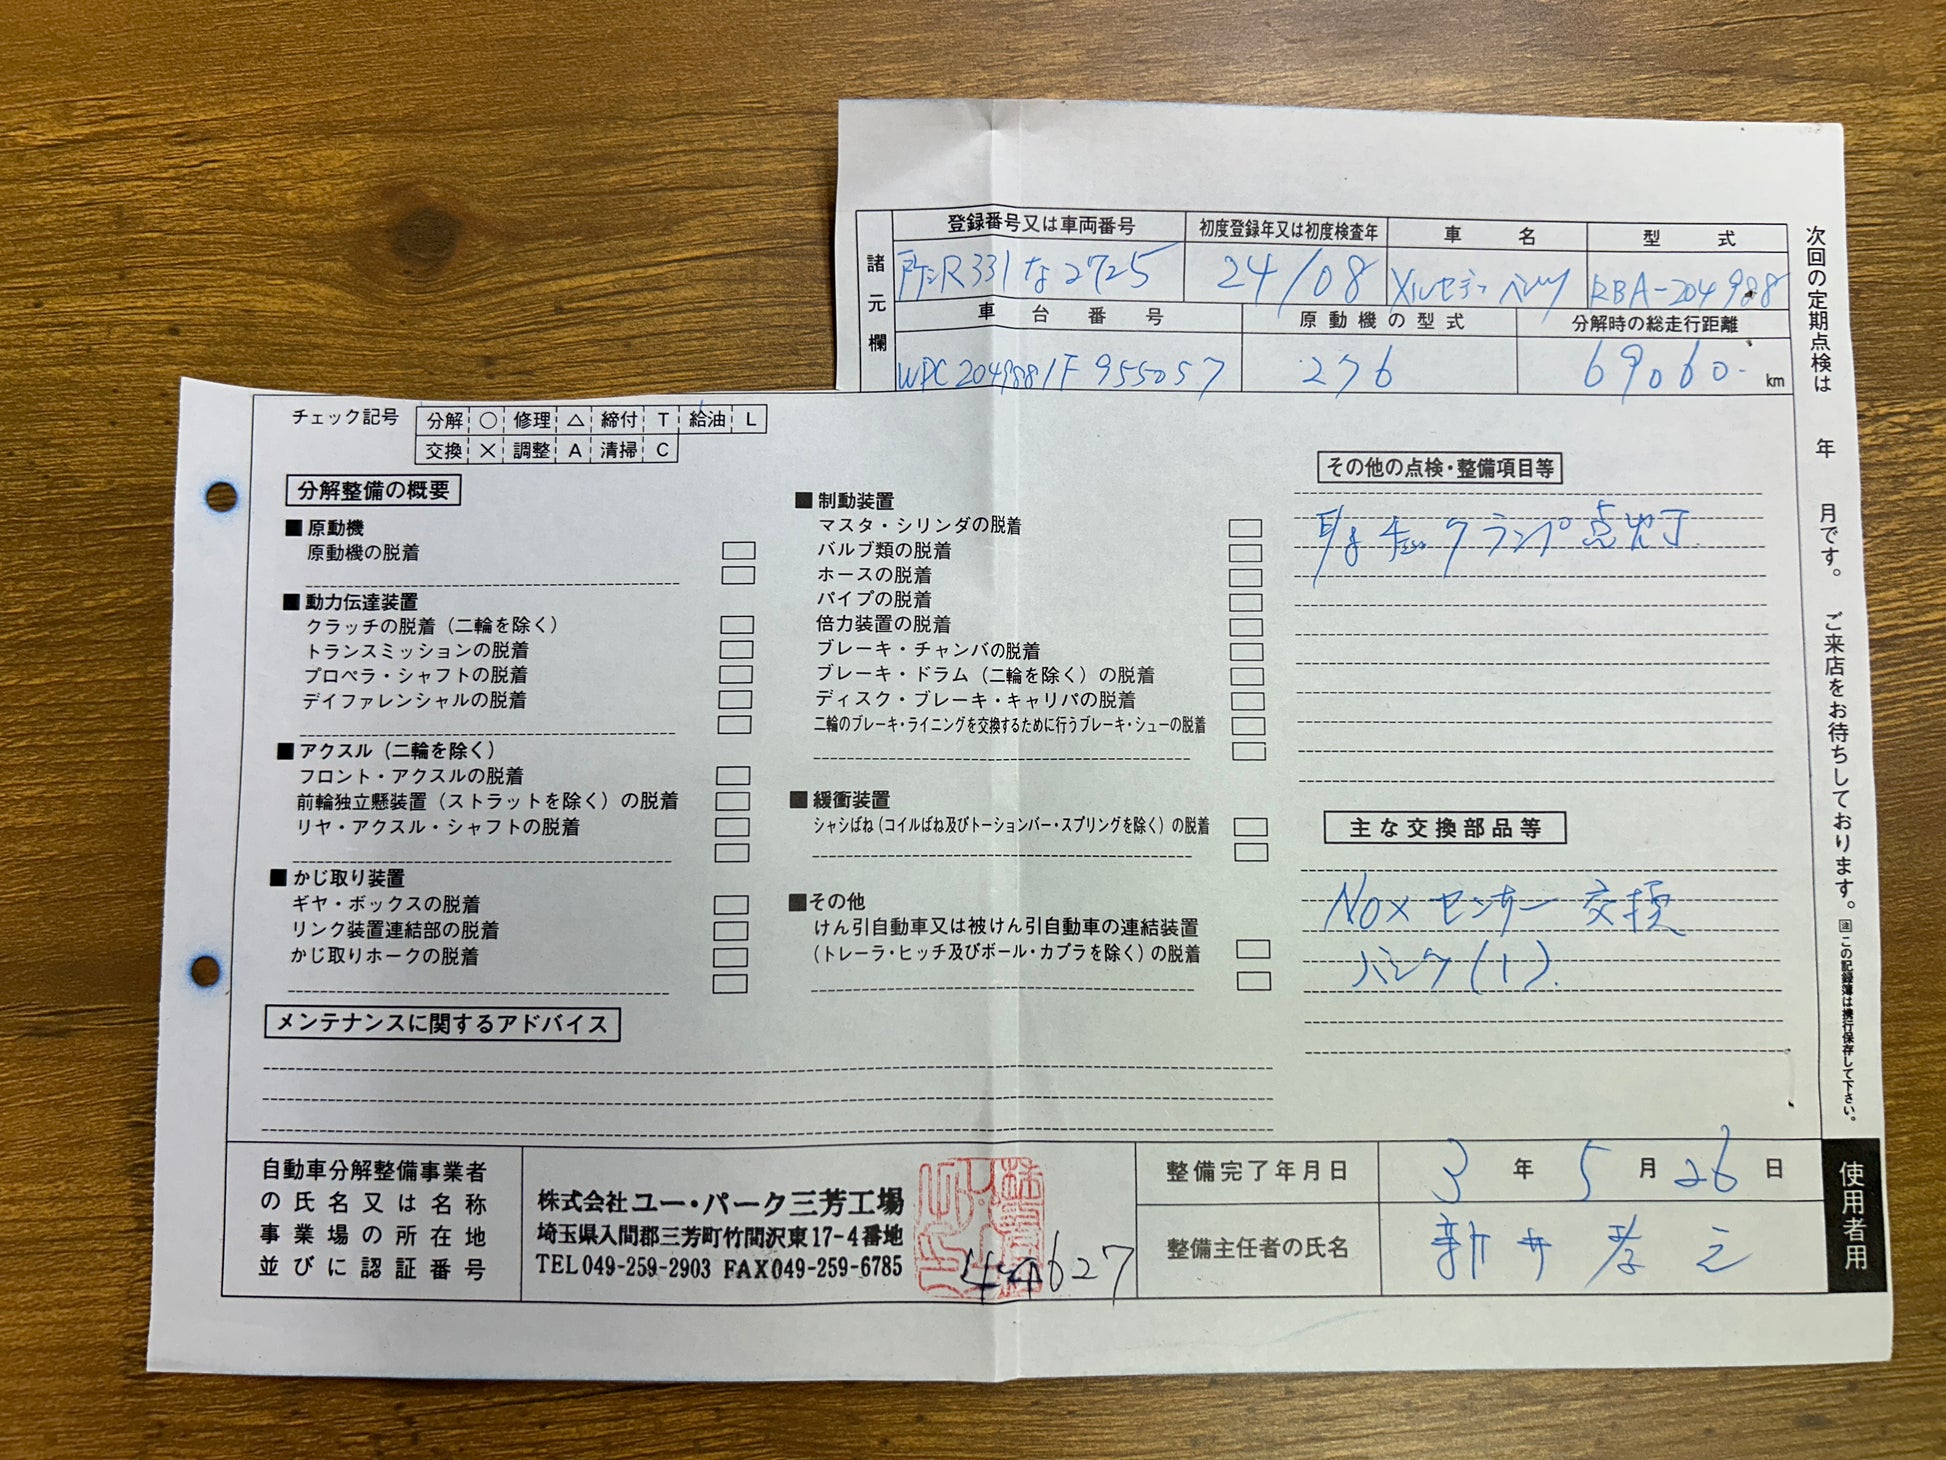 諸元欄
登録番号又は車両番号
初度登録年又は初度検査年
車名
型式
331な2725
24/08
メルセデス ベンツ
RBA-204988
車台番号
原動機の型式
分解時の総走行距離
276
69060 km
次回の定期点検は 年 月です。 ご来店をお待ちしております。
注 この記録簿は携行保存して下さい。
チェック記号
分解 ○ 修理 △ 締付 T 給油 L
交換 × 調整 A 清掃 C
分解整備の概要
■ 原動機
原動機の脱着
■ 動力伝達装置
クラッチの脱着(二輪を除く)
トランスミッションの脱着
プロペラ・シャフトの脱着
デイファレンシャルの脱着
■ アクスル(二輪を除く)
フロント・アクスルの脱着
前輪独立懸装置(ストラットを除く)の脱着
リヤ・アクスル・シャフトの脱着
■ かじ取り装置
ギヤ・ボックスの脱着
リンク装置連結部の脱着
かじ取りホークの脱着
■ 制動装置
マスタ・シリンダの脱着
バルブ類の脱着
ホースの脱着
パイプの脱着
倍力装置の脱着
ブレーキ・チャンバの脱着
ブレーキ・ドラム(二輪を除く)の脱着
ディスク・ブレーキ・キャリパの脱着
二輪のブレーキ・ライニングを交換するために行うブレーキ・シューの脱着
■ 緩衝装置
シャシばね(コイルばね及びトーションバー・スプリングを除く)の脱着
■ その他
けん引自動車又は被けん引自動車の連結装置
(トレーラ・ヒッチ及びボール・カプラを除く)の脱着
その他の点検・整備項目等
ランプ 点灯
主な交換部品等
NOx センサー 交換
バンク(1).
メンテナンスに関するアドバイス
自動車分解整備事業者
の氏名又は名称
事業場の所在地
並びに認証番号
株式会社ユー・パーク三芳工場
埼玉県入間郡三芳町竹間沢東17-4番地
TEL049-259-2903 FAX049-259-6785
整備完了年月日
3年5月26日
整備主任者の氏名
新井 孝之
使用者用